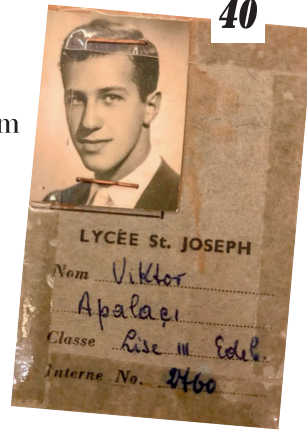 40
m
LYCÉE St. JOSEPH
Nom Viktor
Apalaçi
Classe Lise III Edeb.
Interne No. 2760